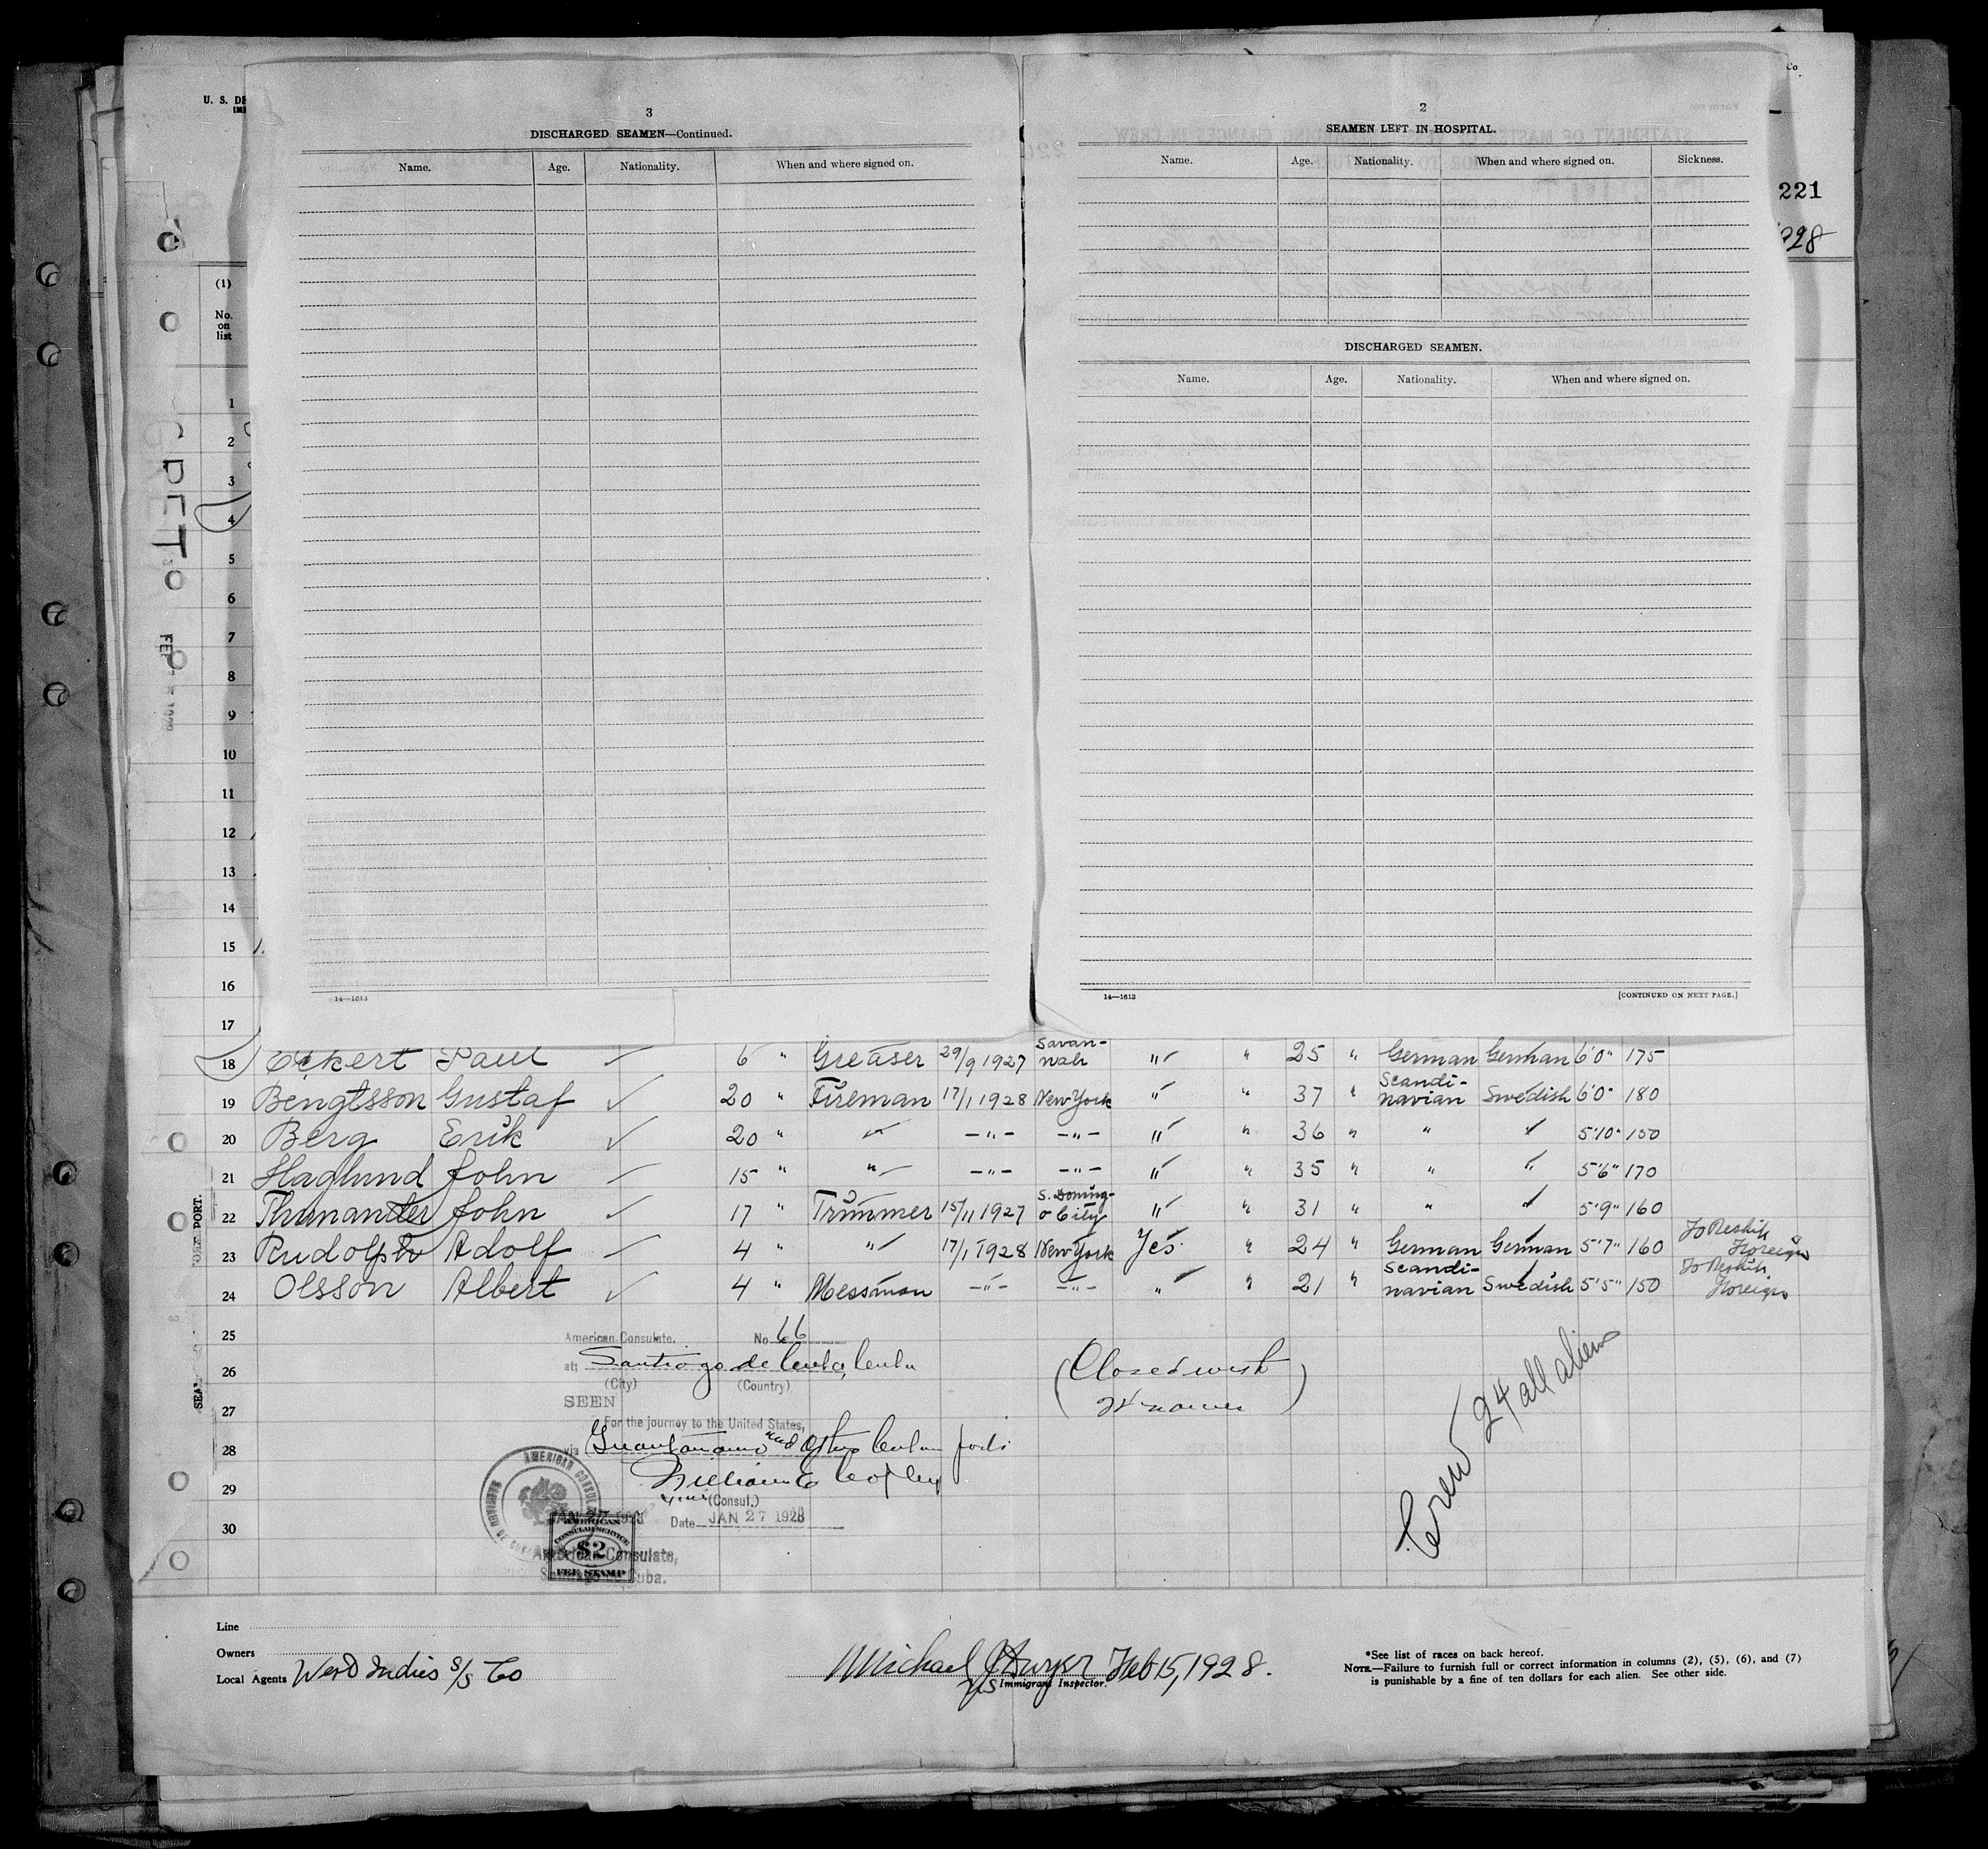 U. S. DE
3
DISCHARGED SEAMEN—Continued.
Name. Age. Nationality. When and where signed on.
14—1613
2
SEAMEN LEFT IN HOSPITAL.
Name. Age. Nationality. When and where signed on. Sickness.
DISCHARGED SEAMEN.
Name. Age. Nationality. When and where signed on.
14—1613 [CONTINUED ON NEXT PAGE.]
Co
221
928
(1)
No.
on
list
1
2
3
4
5
6
7
8
9
10
11
12
13
14
15
16
17
18 Eckert Paul 6 " Greaser 29/9 1927 Savan-nah " " 25 " German German 6'0" 175
19 Bengtsson Gustaf 20 " Fireman 17/1 1928 New York " " 37 " Scandi-navian Swedish 6'0" 180
20 Berg Erik 20 " " -"- -"- " " 36 " " " 5'10" 150
21 Haglund John 15 " " -"- -"- " " 35 " " " 5'6" 170
22 Thunander John 17 " Trimmer 15/11 1927 S. Doming-o City " " 31 " " " 5'9" 160
23 Rudolph Adolf 4 " " 17/1 1928 New York Yes " 24 " German German 5'7" 160 To Reship Foreign
24 Olsson Albert 4 " Messman -"- -"- " " 21 " Scandi-navian Swedish 5'5" 150 To Reship Foreign
25
26
27
28
29
30
American Consulate. No. 66
at Santiago de Cuba, Cuba
(City) (Country)
SEEN
For the journey to the United States,
via Guantanamo and other Cuban ports
William E Copley
(Consul.)
Date JAN 27 1928
AMERICAN CONSULAR SERVICE
$2
FEE STAMP
American Consulate,
Santiago de Cuba.
(Closed with
24 names)
Crew 24 all aliens
Line
Owners
Local Agents West Indies S/S Co
Michael J Dwyer Feb 15, 1928.
US Immigrant Inspector.
*See list of races on back hereof.
NOTE.—Failure to furnish full or correct information in columns (2), (5), (6), and (7)
is punishable by a fine of ten dollars for each alien. See other side.